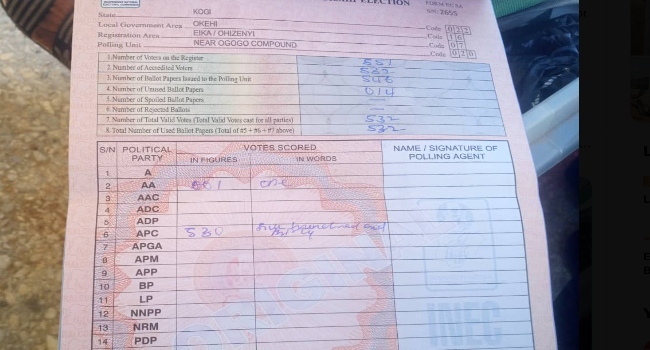 ELECTION
State KOGI
S/N. 2655
Local Government Area OKEHI Code 0 2 2
Registration Area EIKA / OHIZENYI Code 1 6
Polling Unit NEAR OGOGO COMPOUND Code 0 7
Code 0 2 0
1. Number of Voters on the Register 551
2. Number of Accredited Voters 532
3. Number of Ballot Papers Issued to the Polling Unit 546
4. Number of Unused Ballot Papers 014
5. Number of Spoiled Ballot Papers —
6. Number of Rejected Ballots —
7. Number of Total Valid Votes (Total Valid Votes cast for all parties) 532
8. Total Number of Used Ballot Papers (Total of #5 + #6 + #7 above) 532
S/N POLITICAL PARTY VOTES SCORED NAME / SIGNATURE OF POLLING AGENT
IN FIGURES IN WORDS
1 A
2 AA 001 one
3 AAC
4 ADC
5 ADP
6 APC 530 five hundred and thirty
7 APGA
8 APM
9 APP
10 BP
11 LP
12 NNPP
13 NRM
14 PDP
INEC